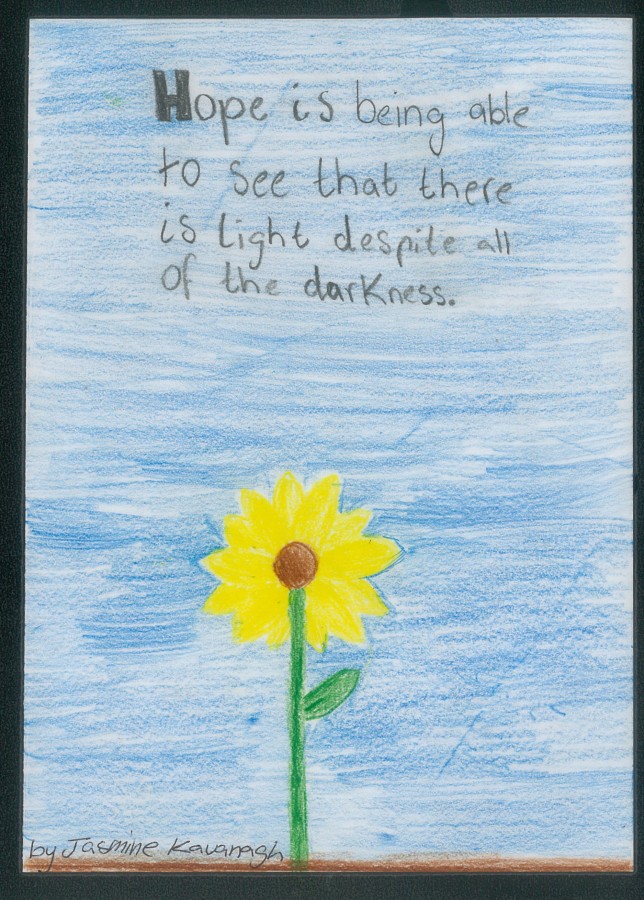 Hope is being able
to see that there
is light despite all
of the darkness.
by Jasmine Kavanagh